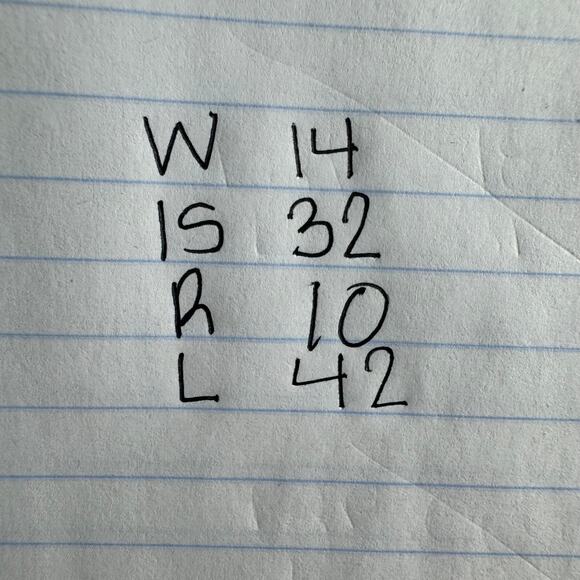 W 14
IS 32
R 10
L 42